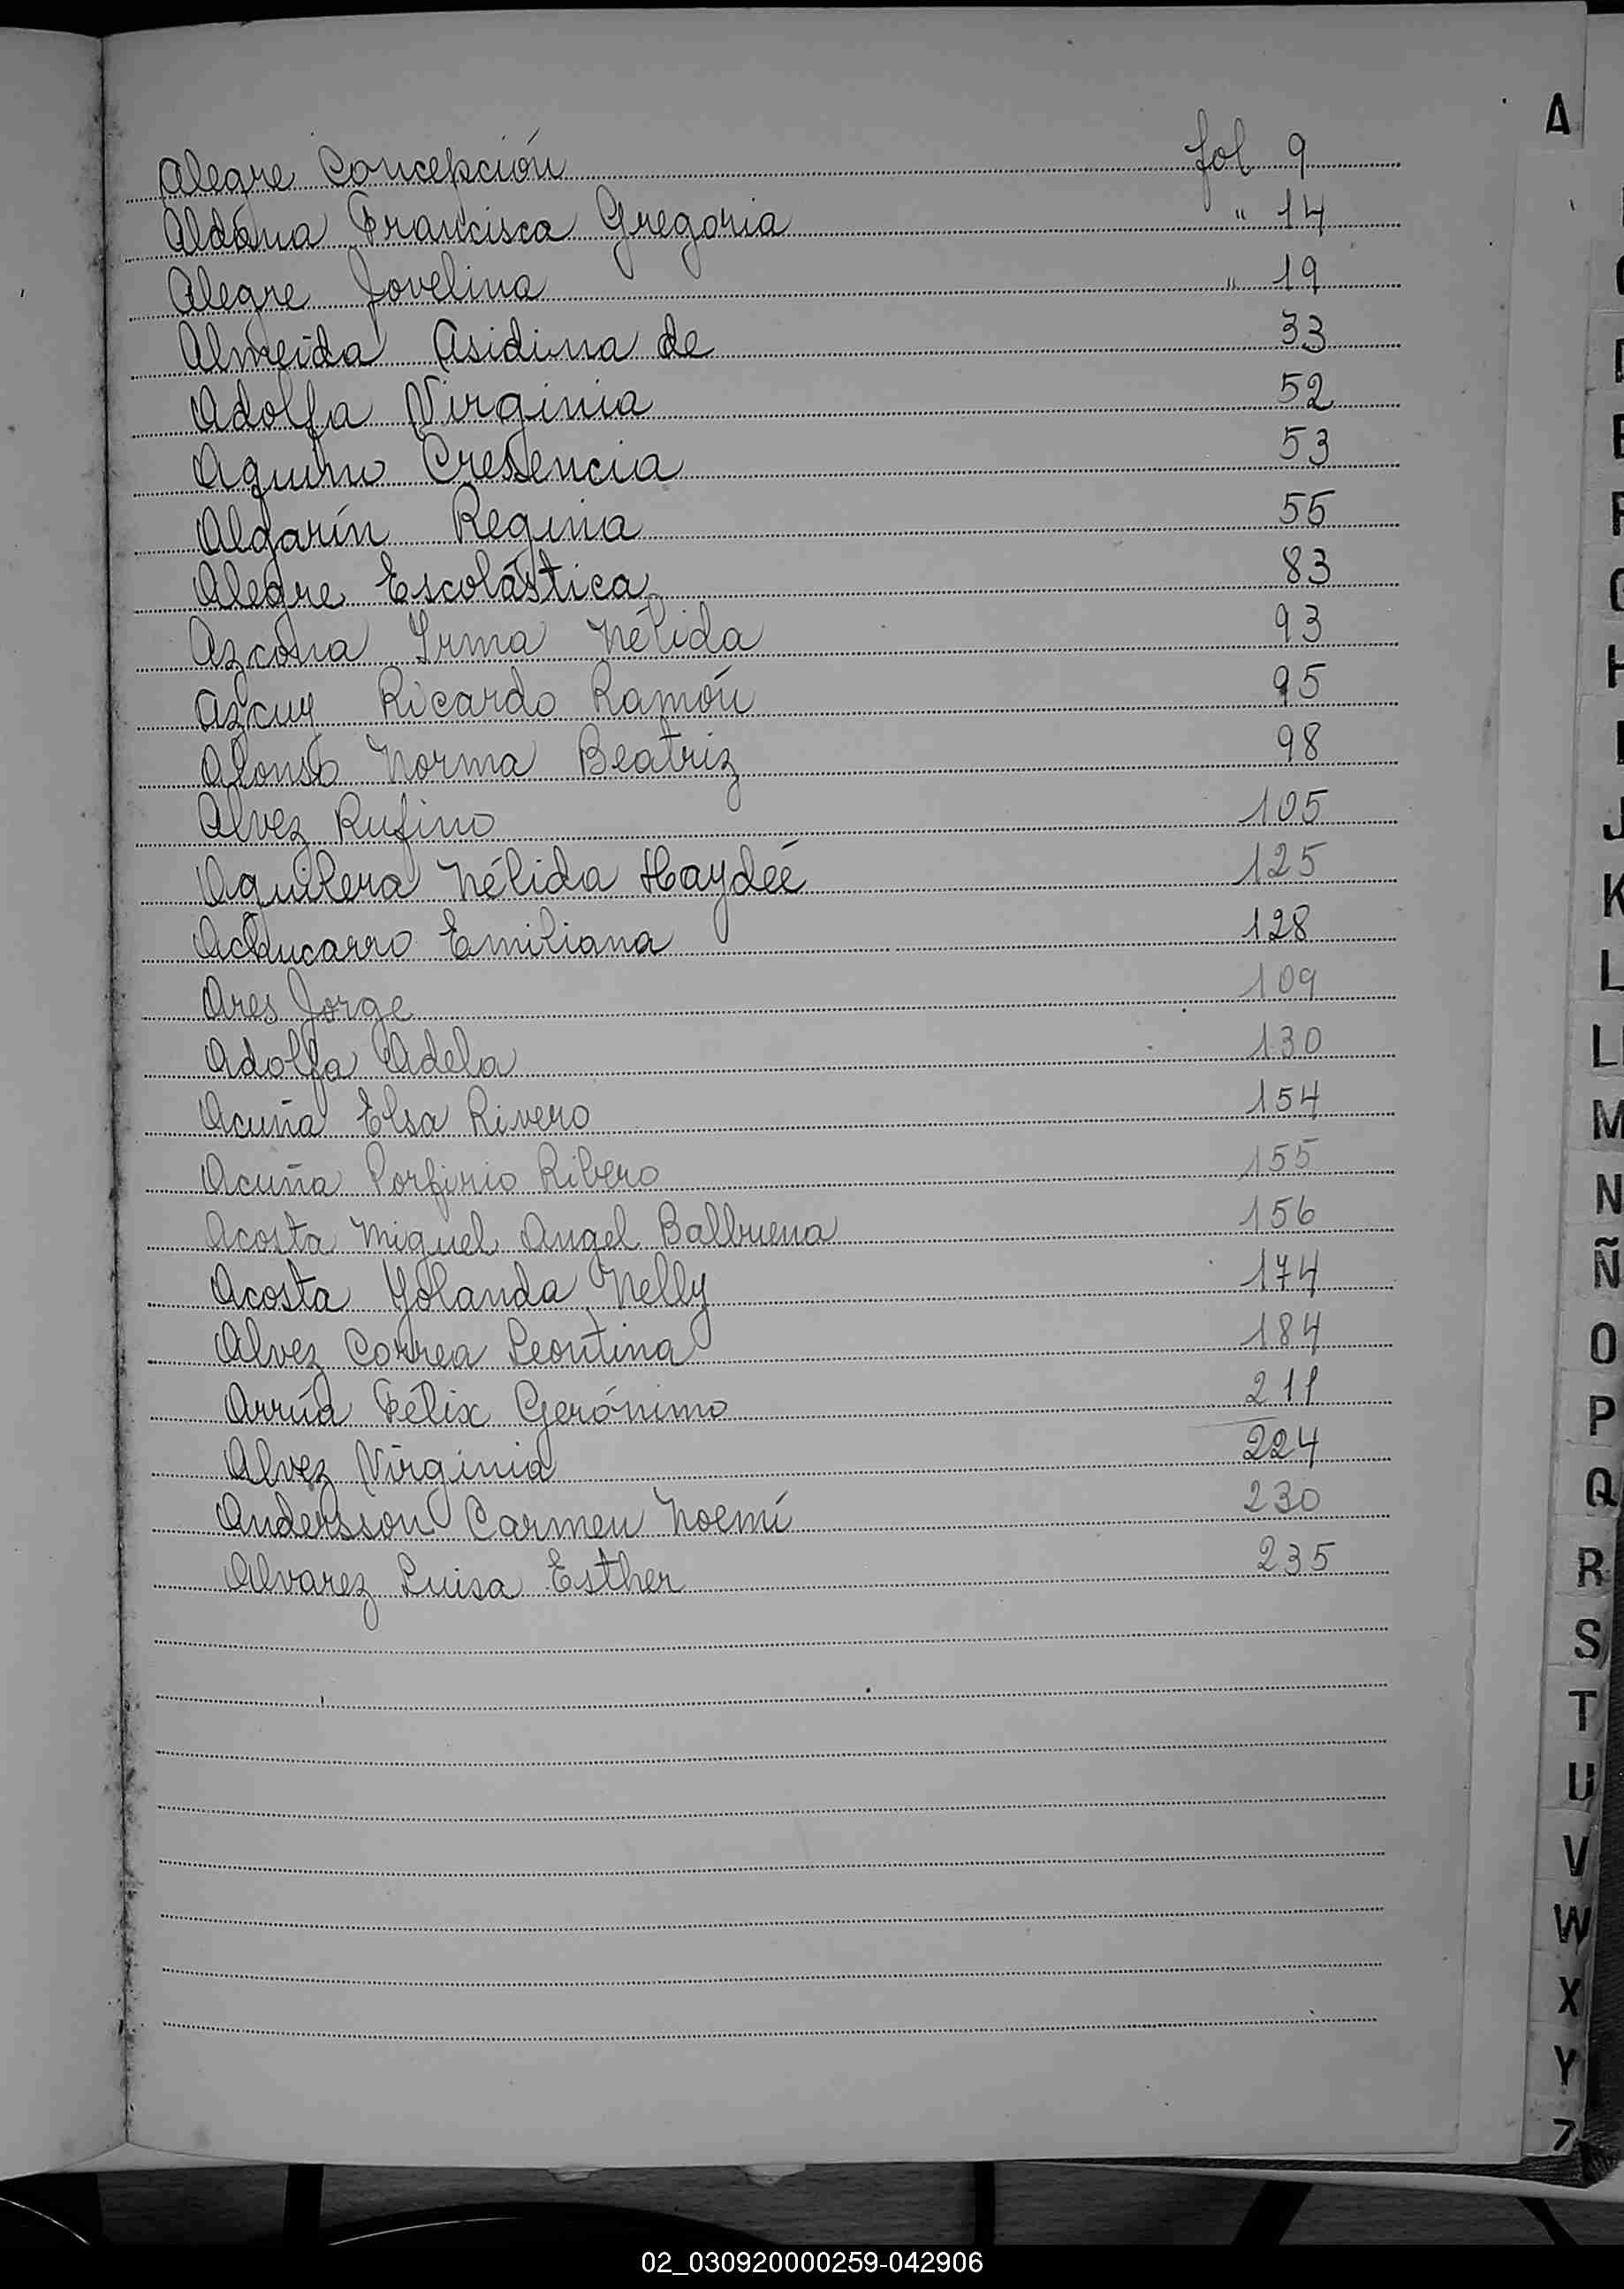 A
Alegre Concepción fol 9
Aldana Francisca Gregoria " 14
Alegre Jovelina " 19
Almeida Asidina de 33
Adolfa Virginia 52
Aquino Cresencia 53
Algarín Regina 55
Alegre Escolástica 83
Azcona Irma Nélida 93
Azcuy Ricardo Ramón 95
Alonso Norma Beatriz 98
Alvez Rufino 105
Aguilera Nélida Haydée 125
Achucarro Emiliana 128
Ares Jorge 109
Adolfa Adela 130
Acuña Elsa Rivero 154
Acuña Porfirio Ribero 155
Acosta Miguel Angel Balbuena 156
Acosta Yolanda Nelly 174
Alvez Correa Leontina 184
Arrúa Félix Gerónimo 211
Alvez Virginia 224
Andersson Carmen Noemí 230
Alvarez Luisa Esther 235
H
J
K
L
M
N
Ñ
O
P
Q
R
S
T
U
V
W
X
Y
02_030920000259-042906